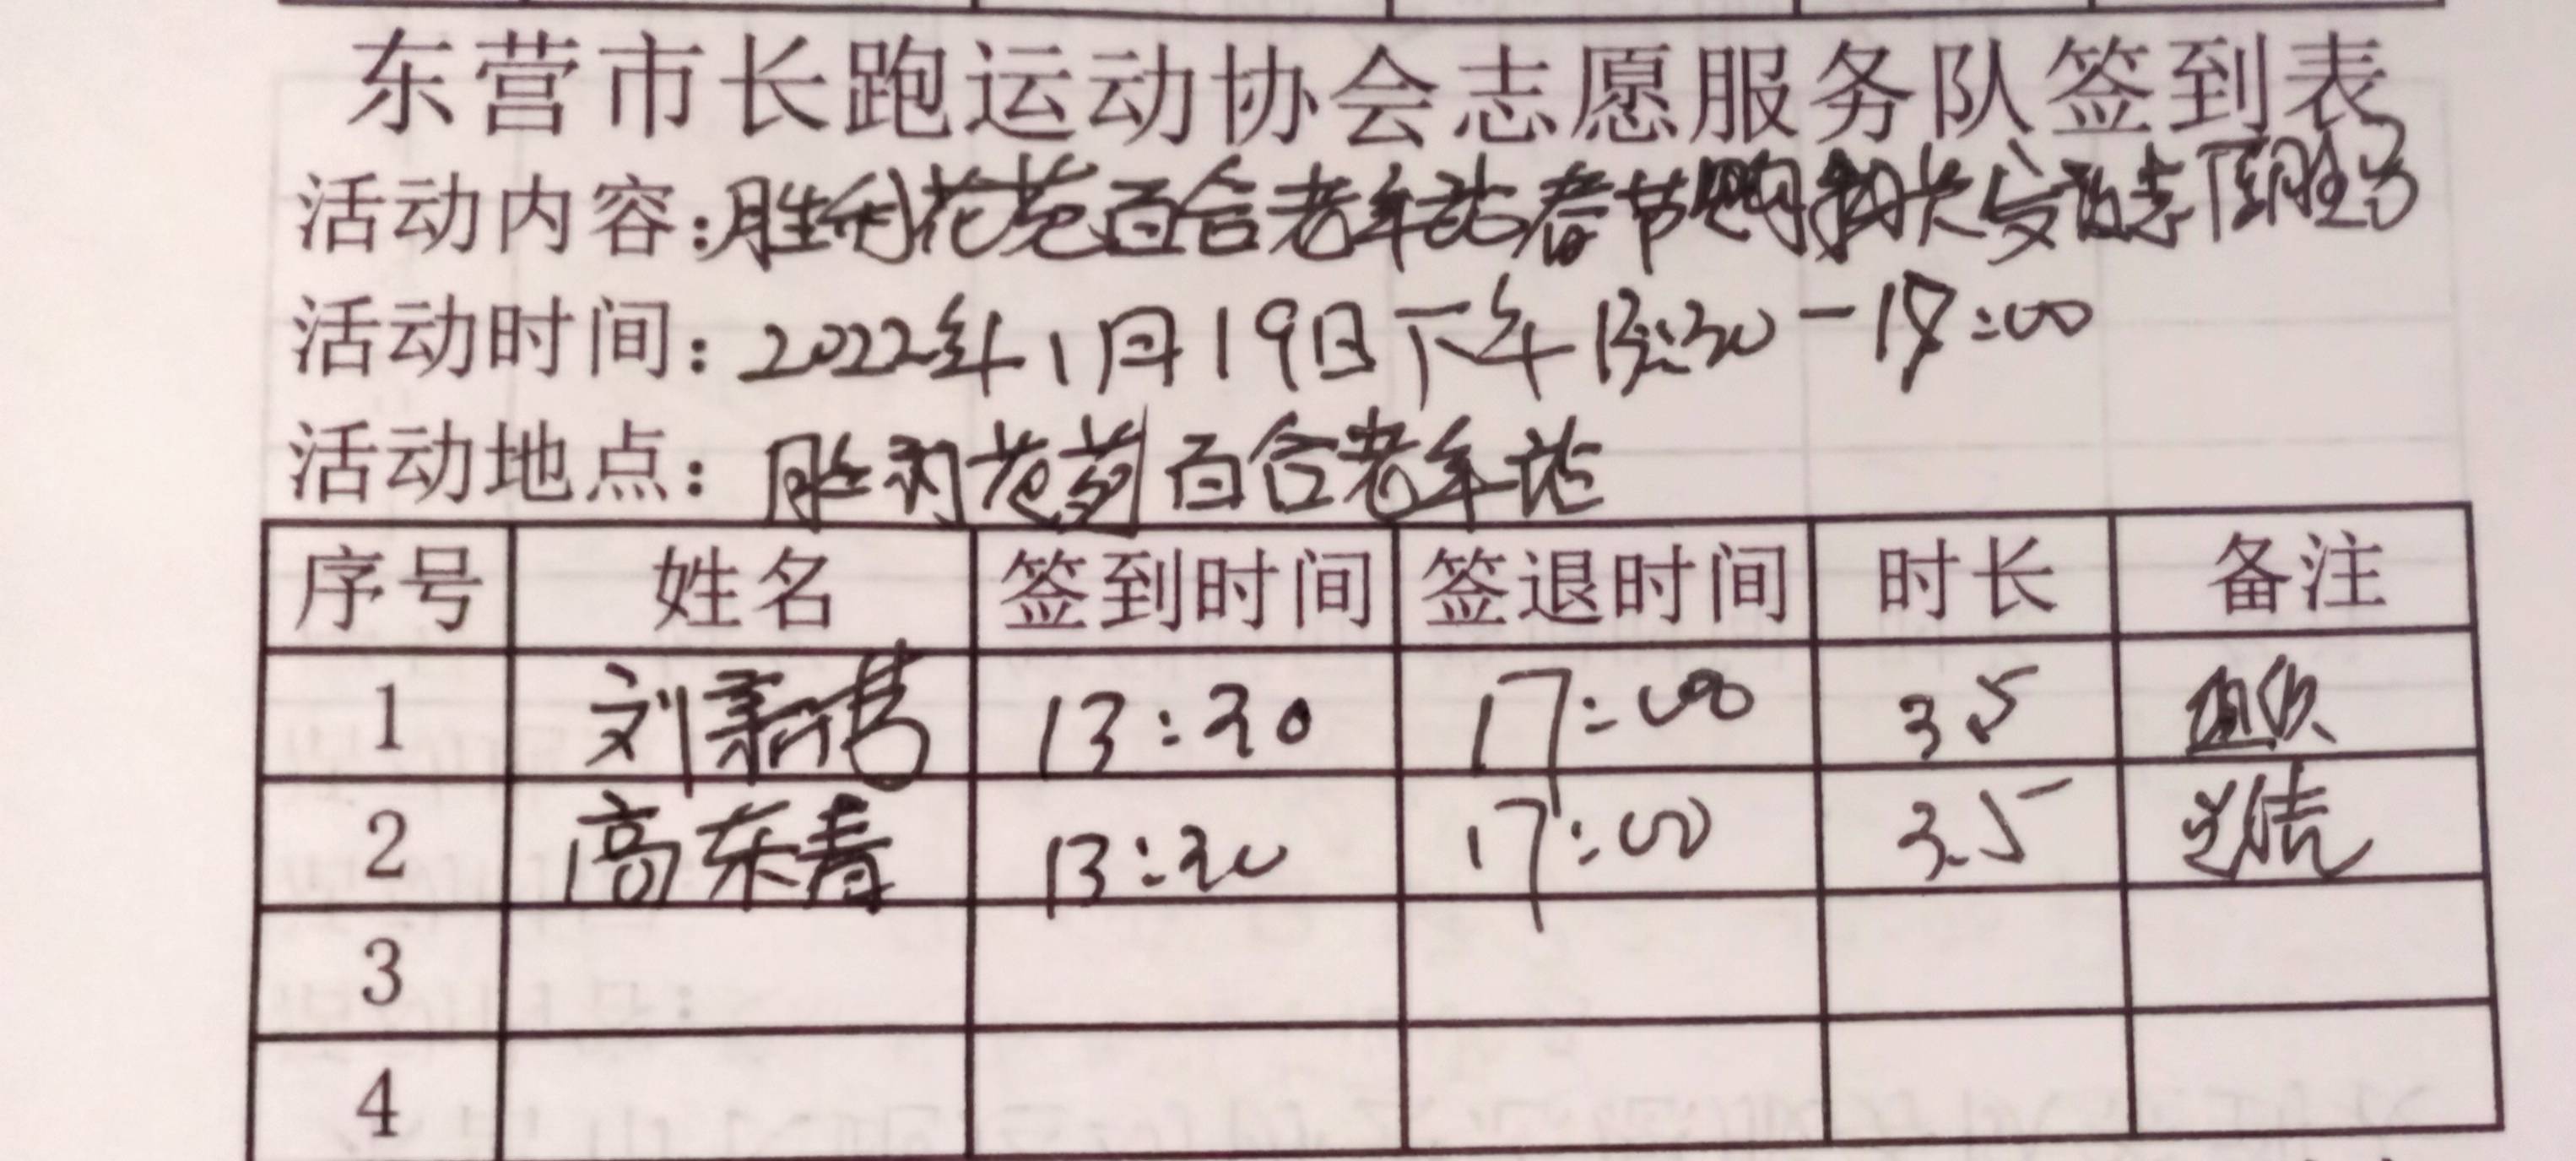 东营市长跑运动协会志愿服务队签到表
活动内容:胜利花苑百合老年站春节购物
活动时间:2022年1月19日下午13:30-17:00
活动地点:胜利花苑百合老年站
序号 姓名 签到时间 签退时间 时长 备注
1 刘新 13:30 17:00 3.5
2 高东青 13:30 17:00 3.5
3
4